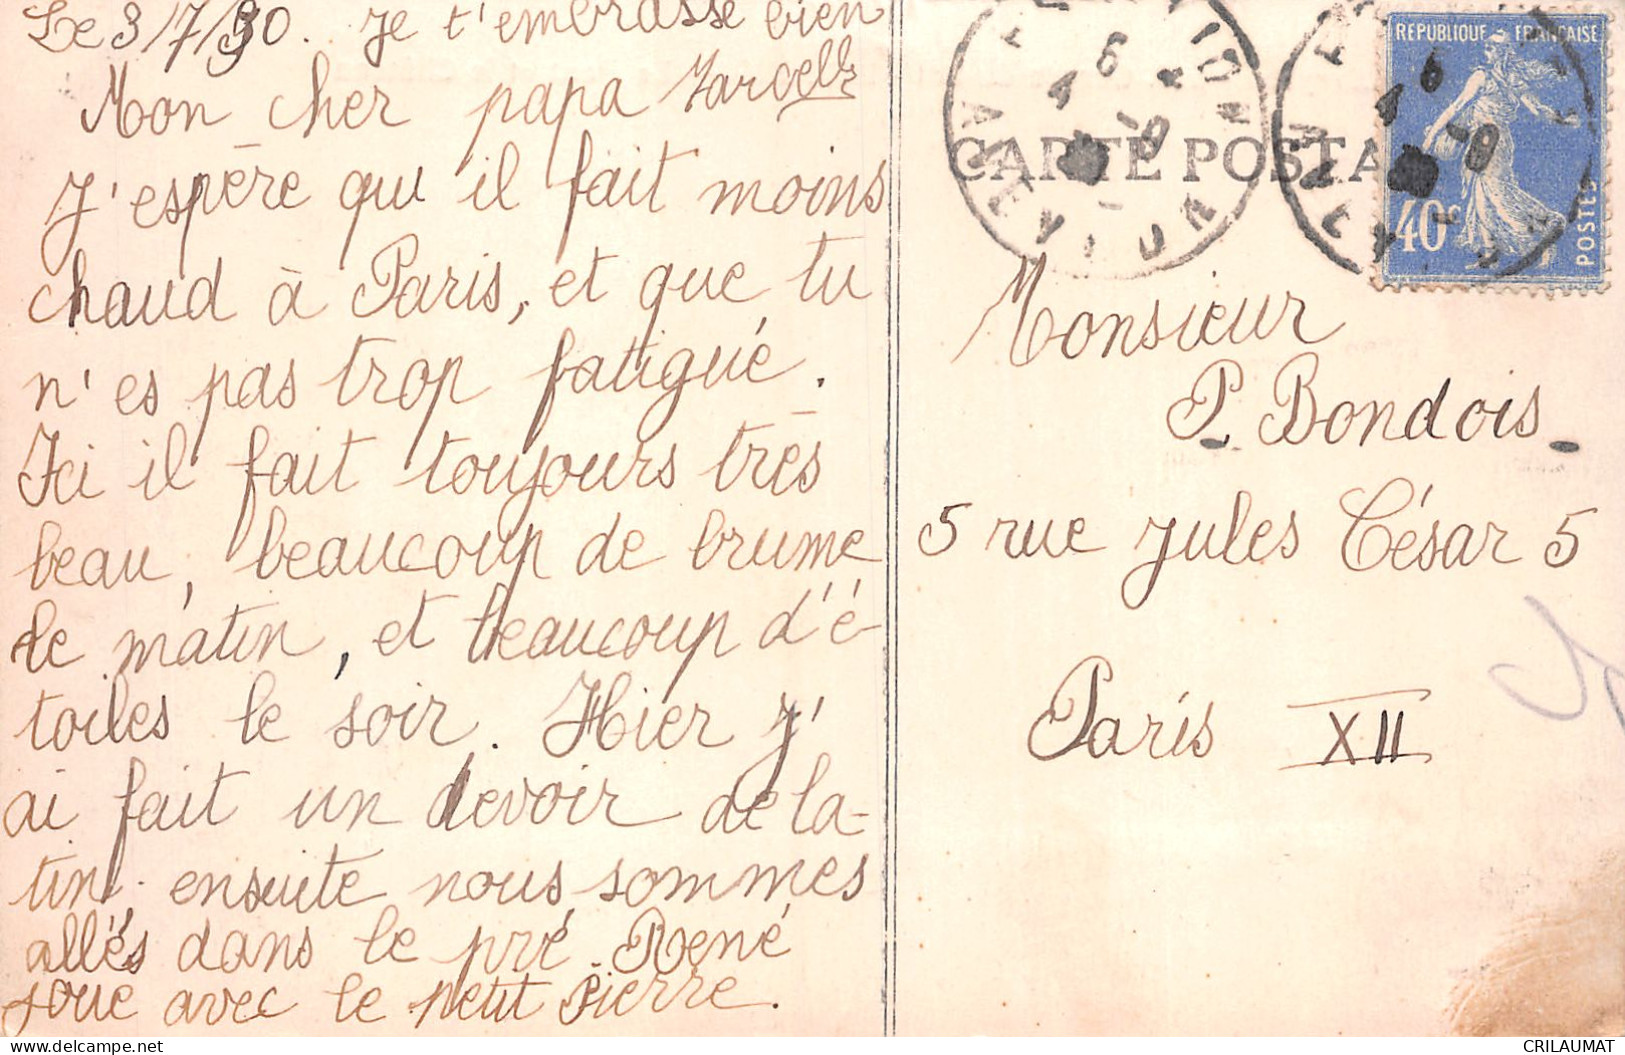 Le 3/7/30. Je t'embrasse bien
Mon cher papa
J'espère qu il fait moins
chaud à Paris, et que tu
n'es pas trop fatigué.
Ici il fait toujours très
beau, beaucoup de brume
le matin, et beaucoup d'é-
toiles le soir. Hier j'
ai fait un devoir de la-
tin, ensuite nous sommes
allés dans le pré. René
joue avec le petit Pierre.
CARTE POSTA
RÉPUBLIQUE FRANÇAISE
40c
POSTES
Monsieur
P. Bondois
5 rue Jules César 5
Paris XII
CRILAUMAT